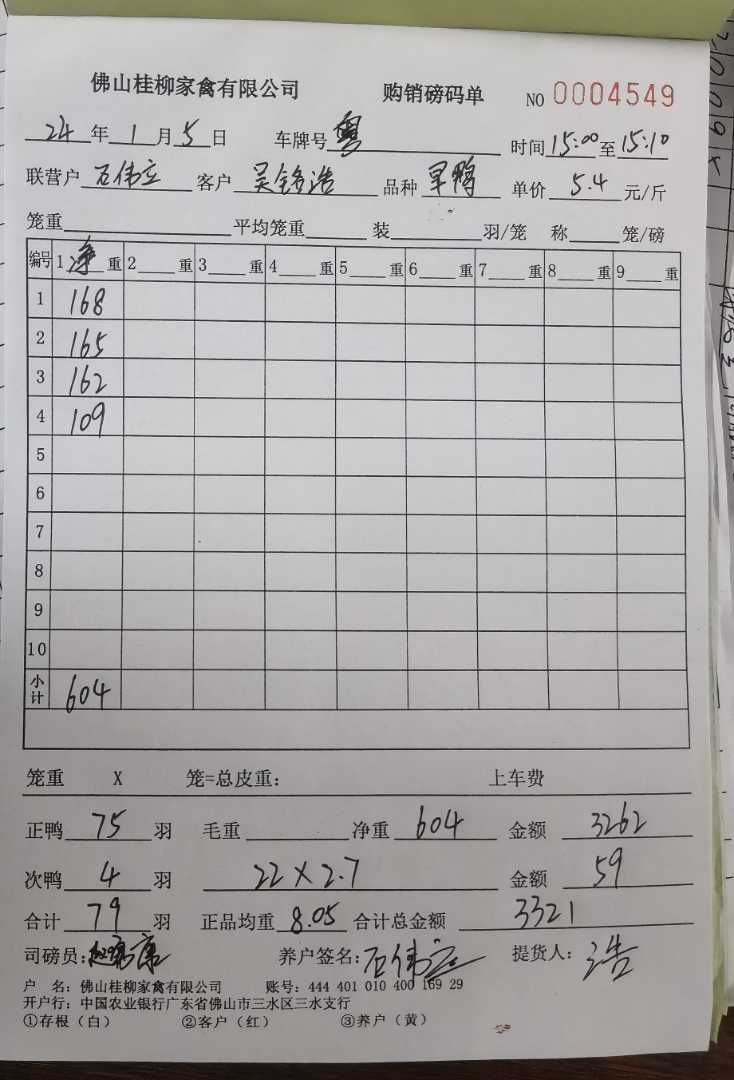 佛山桂柳家禽有限公司 购销磅码单 NO 0004549
24年1月5日 车牌号粤 时间15:00至15:10
联营户 石伟立 客户 吴铭浩 品种 旱鸭 单价 5.4 元/斤
笼重 平均笼重 装 羽/笼 称 笼/磅
编号 1净重 2 重 3 重 4 重 5 重 6 重 7 重 8 重 9 重
1 168
2 165
3 162
4 109
5
6
7
8
9
10
小计 604
笼重 X 笼=总皮重: 上车费
正鸭 75 羽 毛重 净重 604 金额 3262
次鸭 4 羽 22×2.7 金额 59
合计 79 羽 正品均重 8.05 合计总金额 3321
司磅员: 养户签名: 石伟立 提货人: 浩
户 名: 佛山桂柳家禽有限公司 账号: 444 401 010 400 169 29
开户行: 中国农业银行广东省佛山市三水区三水支行
①存根（白） ②客户（红） ③养户（黄）